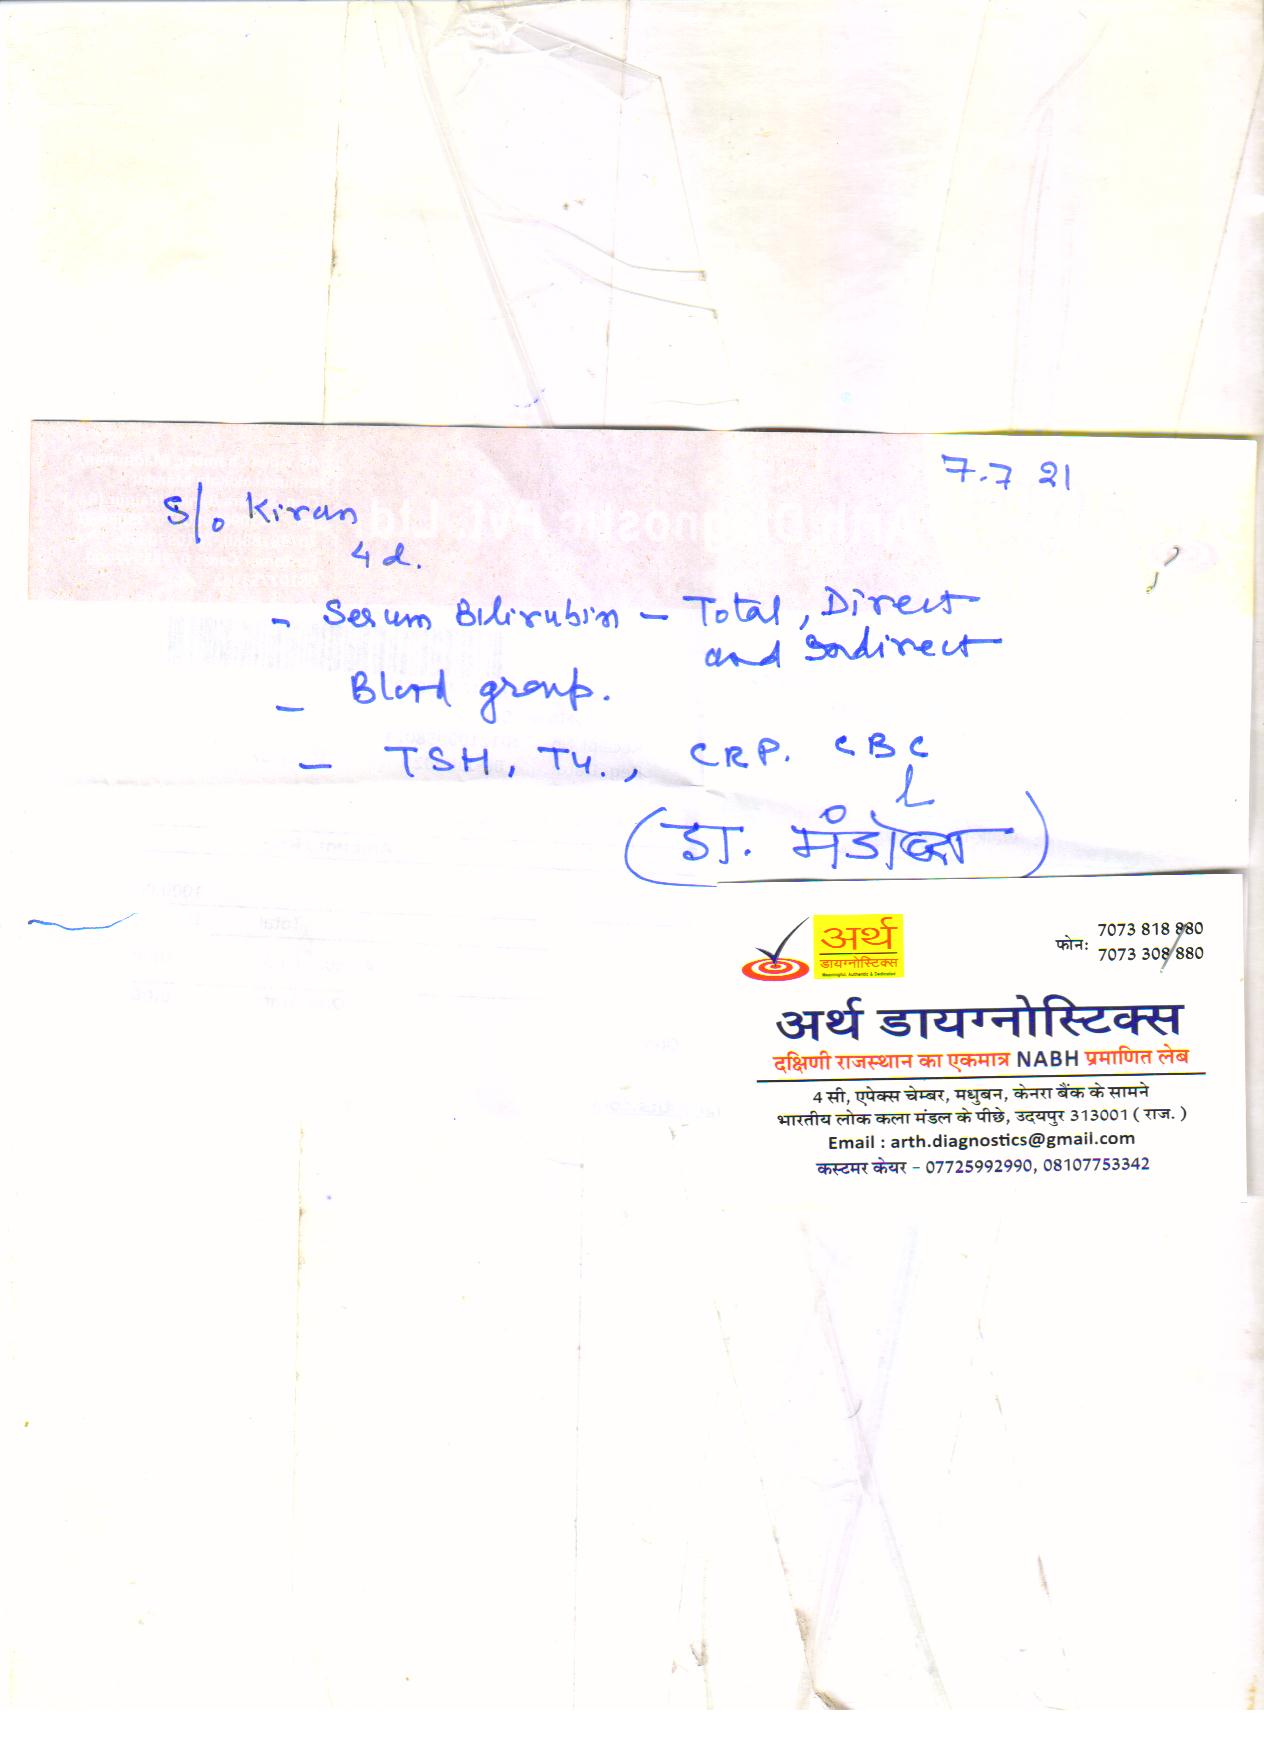 7.7 21
S/o Kiran
4 d.
- Serum Bilirubin - Total, Direct
and Indirect
- Blood group.
- TSH, T4., CRP. CBC
(डा. मंडोवरा)
अर्थ
डायग्नोस्टिक्स
Meaningful, Authentic & Dedicated
फोन: 7073 818 880
7073 308 880
अर्थ डायग्नोस्टिक्स
दक्षिणी राजस्थान का एकमात्र NABH प्रमाणित लेब
4 सी, एपेक्स चेम्बर, मधुबन, केनरा बैंक के सामने
भारतीय लोक कला मंडल के पीछे, उदयपुर 313001 ( राज. )
Email : arth.diagnostics@gmail.com
कस्टमर केयर - 07725992990, 08107753342